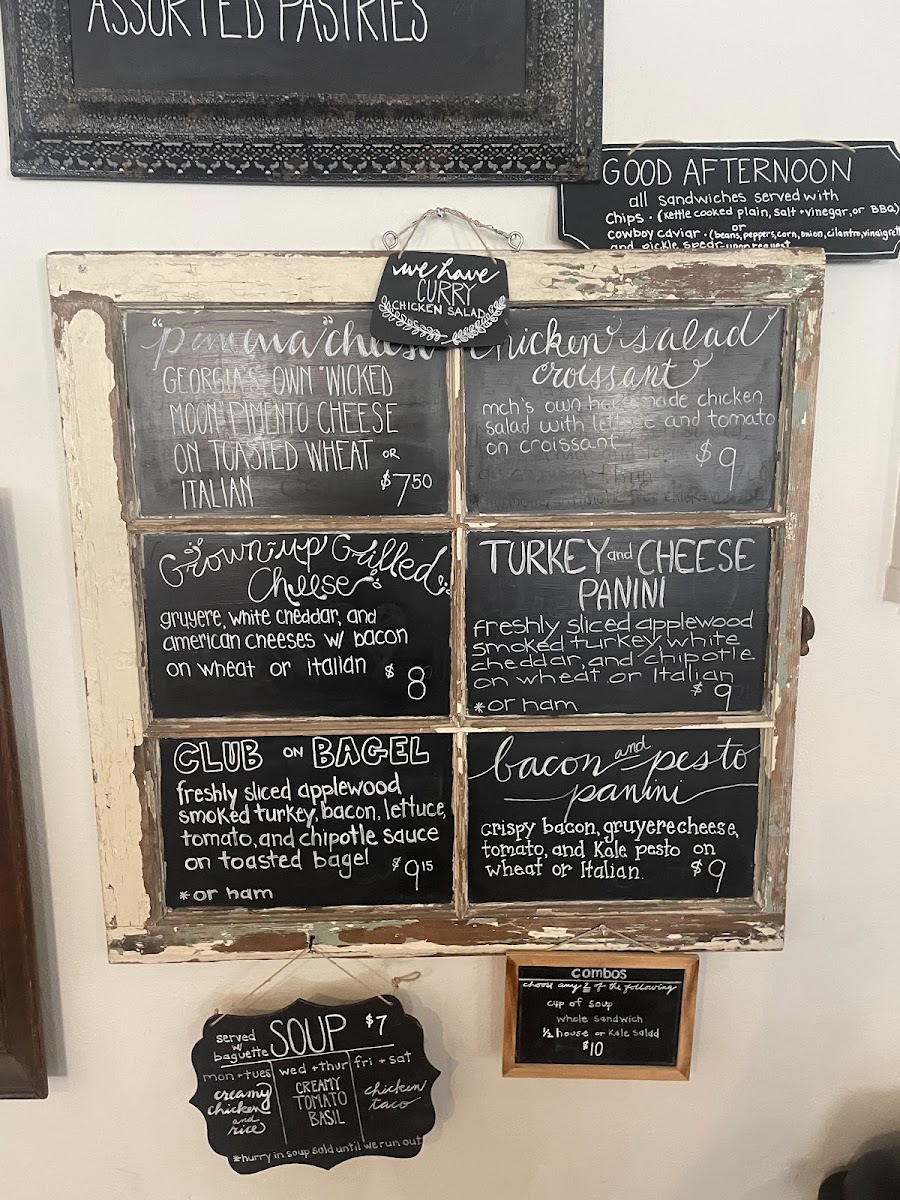 ASSORTED PASTRIES
GOOD AFTERNOON
all sandwiches served with
chips • (kettle cooked plain, salt + vinegar, or BBQ)
or
cowboy caviar • (beans, peppers, corn, onion, cilantro, vinaigrette
and pickle spear upon request
we have
CURRY
CHICKEN SALAD
"pimena" cheese
GEORGIA'S OWN "WICKED
MOON" PIMENTO CHEESE
ON TOASTED WHEAT OR
ITALIAN $7.50
chicken salad
croissant
mch's own homemade chicken
salad with lettuce and tomato
on croissant
$9
Grown-up Grilled
Cheese
gruyere, white cheddar, and
american cheeses w/ bacon
on wheat or italian $8
TURKEY and CHEESE
PANINI
freshly sliced applewood
smoked turkey, white
cheddar, and chipotle
on wheat or Italian
$9
*or ham
CLUB ON BAGEL
freshly sliced applewood
smoked turkey, bacon, lettuce,
tomato, and chipotle sauce
on toasted bagel $9.15
*or ham
bacon and pesto
panini
crispy bacon, gruyere cheese,
tomato, and kale pesto on
wheat or Italian. $9
served
w/
baguette SOUP $7
mon + tues
creamy
chicken
and
rice
wed + thur
CREAMY
TOMATO
BASIL
fri + sat
chicken
taco
*hurry in soup sold until we run out
combos
choose any 2 of the following
cup of soup
whole sandwich
1/2 house or kale salad
$10